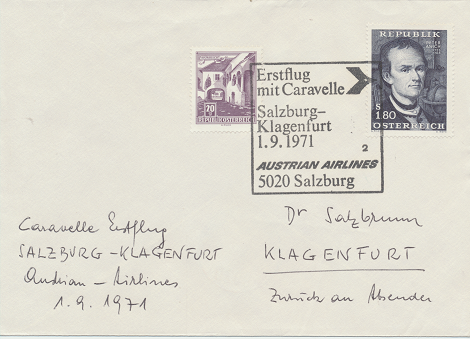 70g
REPUBLIK ÖSTERREICH
REPUBLIK
PETER
ANICH
S
1.80
ÖSTERREICH
Erstflug
mit Caravelle
Salzburg–
Klagenfurt
1.9.1971
2
AUSTRIAN AIRLINES
5020 Salzburg
Caravelle Erstflug
SALZBURG - KLAGENFURT
Austrian - Airlines
1. 9. 1971
Dr Salzbrunn
KLAGENFURT
Zurück an Absender